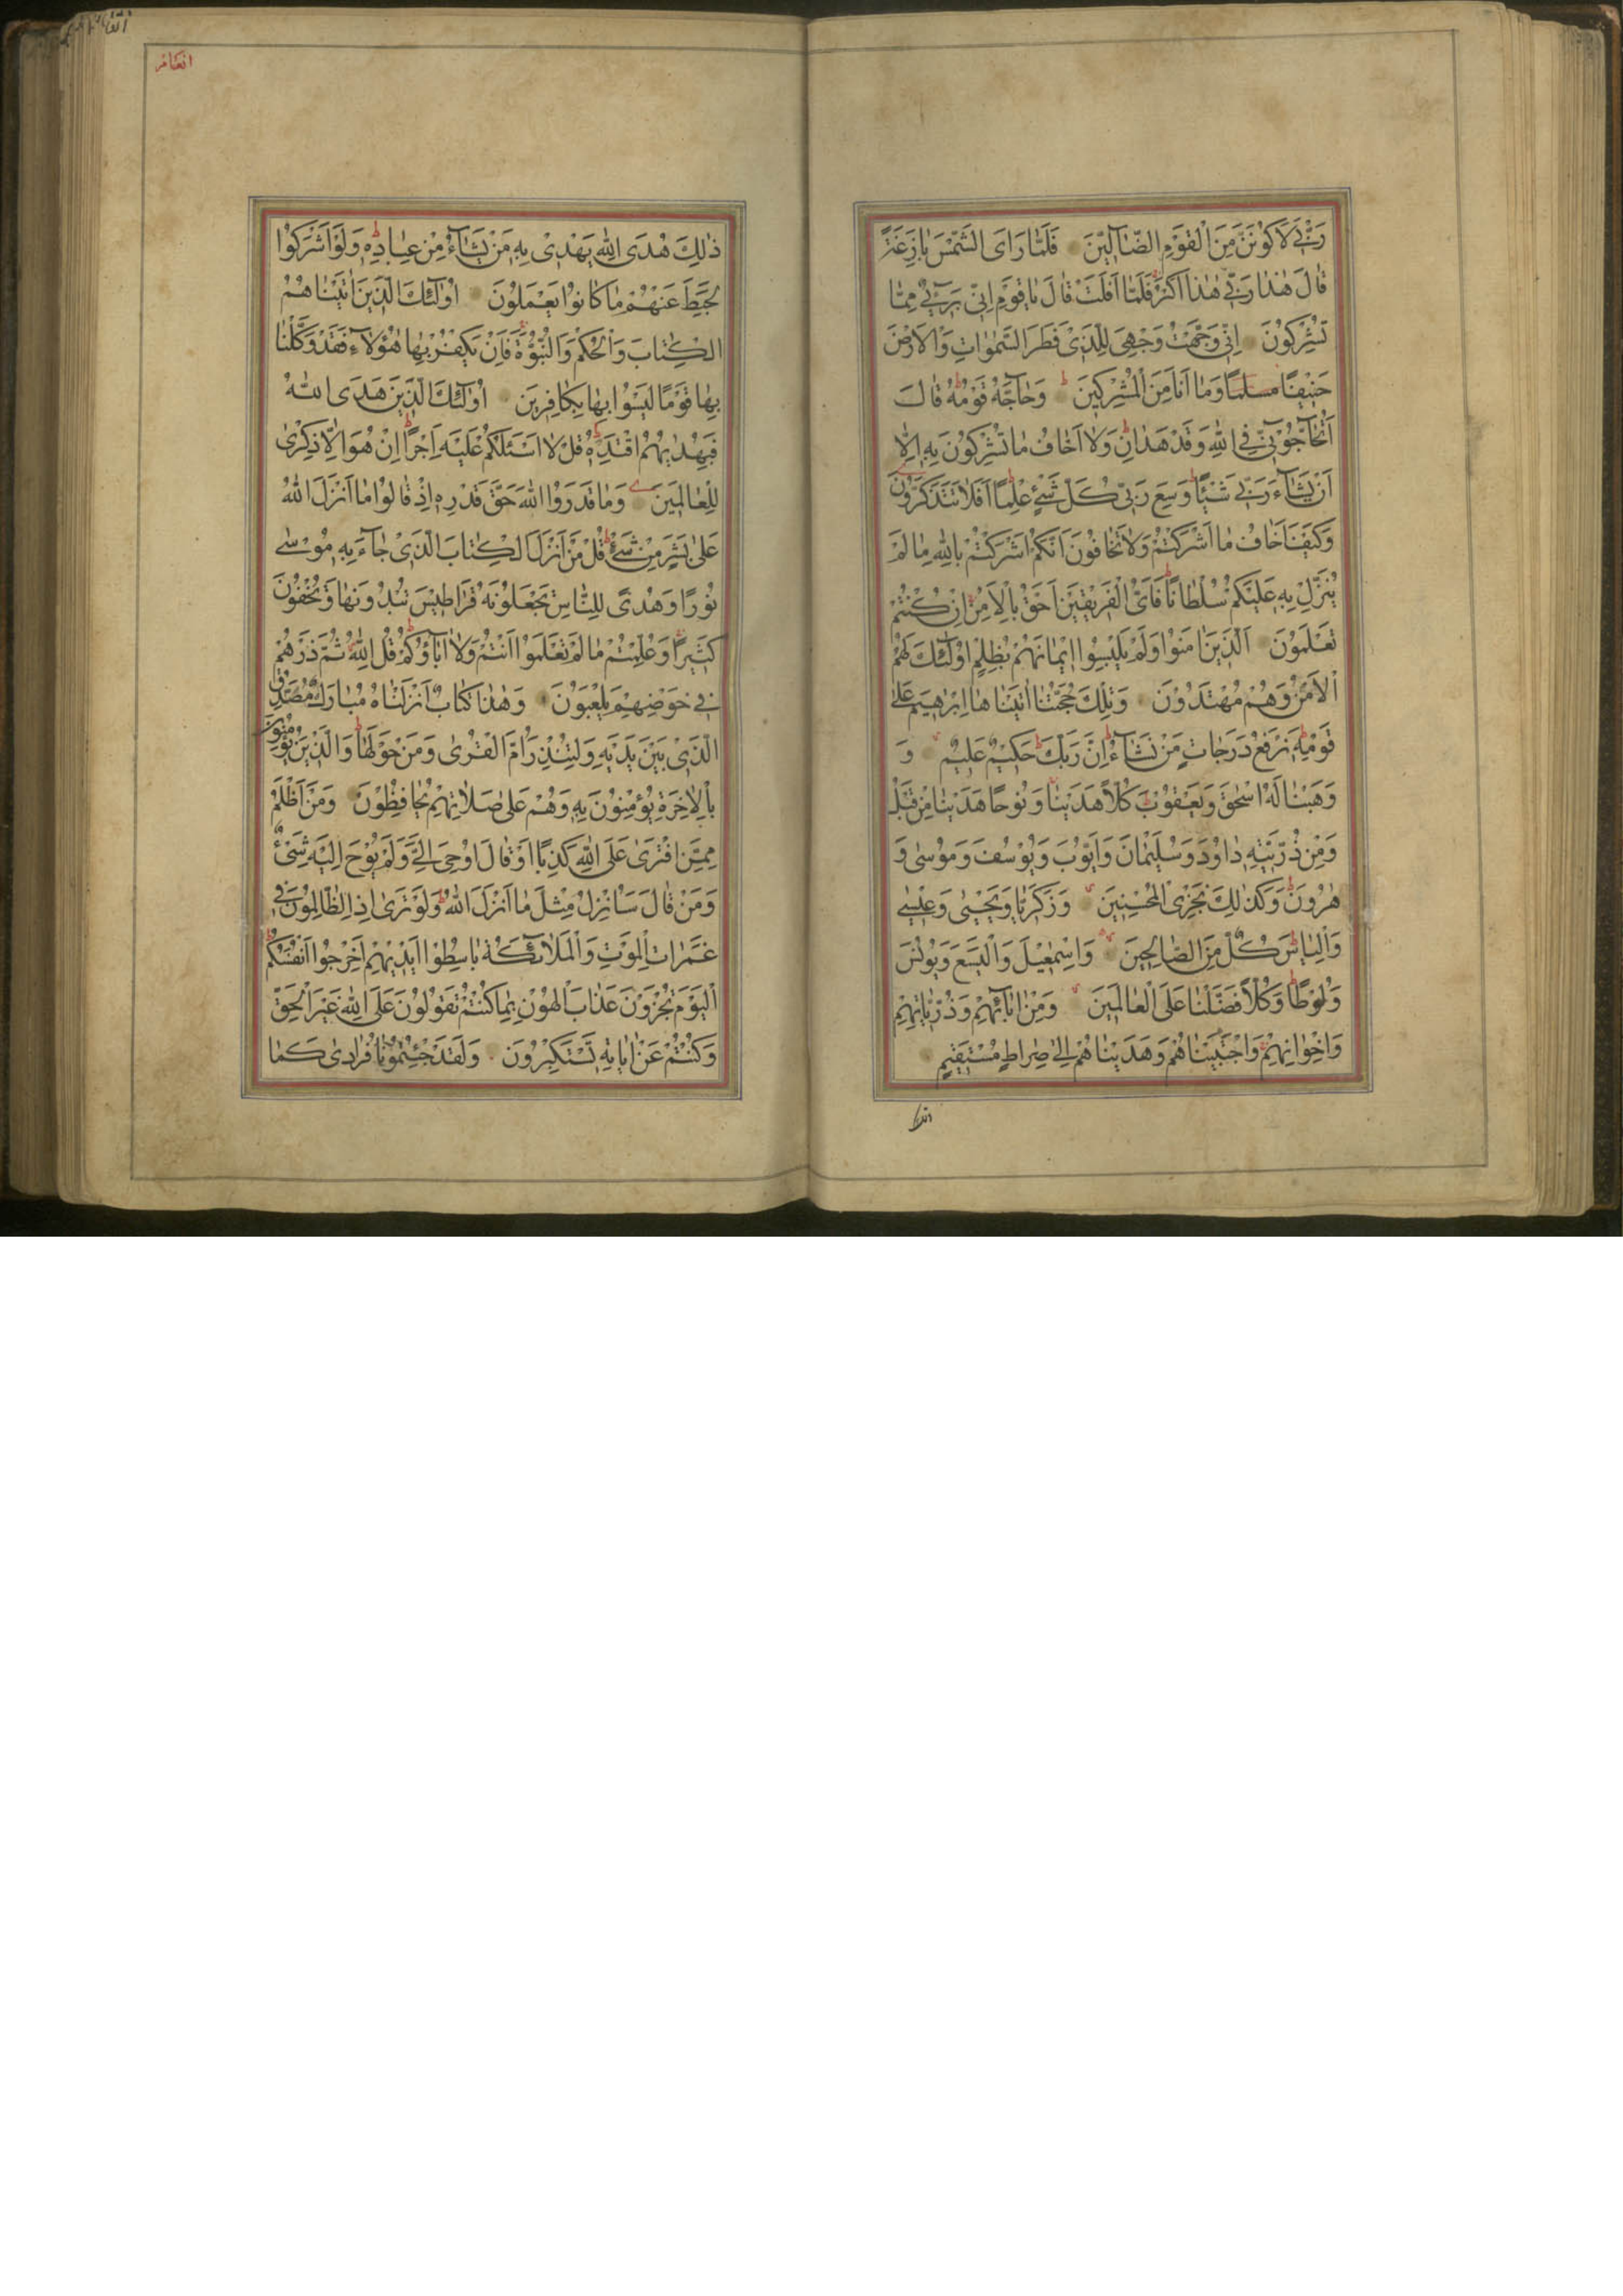 رَبِّي لَأَكُونَنَّ مِنَ الْقَوْمِ الضَّالِّينَ فَلَمَّا رَأَى الشَّمْسَ بَازِغَةً
قَالَ هَذَا رَبِّي هَذَا أَكْبَرُ فَلَمَّا أَفَلَتْ قَالَ يَا قَوْمِ إِنِّي بَرِيءٌ مِمَّا
تُشْرِكُونَ إِنِّي وَجَّهْتُ وَجْهِيَ لِلَّذِي فَطَرَ السَّمٰوَاتِ وَالْأَرْضَ
حَنِيفًا مسلمًا وَمَا أَنَا مِنَ الْمُشْرِكِينَ وَحَاجَّهُ قَوْمُهُ قَالَ
أَتُحَاجُّونِّي فِي اللهِ وَقَدْ هَدَانِ وَلَا أَخَافُ مَا تُشْرِكُونَ بِهِ إِلَّا
أَنْ يَشَاءَ رَبِّي شَيْئًا وَسِعَ رَبِّي كُلَّ شَيْءٍ عِلْمًا أَفَلَا تَتَذَكَّرُونَ
وَكَيْفَ أَخَافُ مَا أَشْرَكْتُمْ وَلَا تَخَافُونَ أَنَّكُمْ أَشْرَكْتُمْ بِاللهِ مَا لَمْ
يُنَزِّلْ بِهِ عَلَيْكُمْ سُلْطَانًا فَأَيُّ الْفَرِيقَيْنِ أَحَقُّ بِالْأَمْنِ إِنْ كُنْتُمْ
تَعْلَمُونَ الَّذِينَ آمَنُوا وَلَمْ يَلْبِسُوا إِيمَانَهُمْ بِظُلْمٍ أُولَئِكَ لَهُمُ
الْأَمْنُ وَهُمْ مُهْتَدُونَ وَتِلْكَ حُجَّتُنَا آتَيْنَاهَا إِبْرٰهِيمَ عَلَى
قَوْمِهِ نَرْفَعُ دَرَجَاتٍ مَنْ نَشَاءُ إِنَّ رَبَّكَ حَكِيمٌ عَلِيمٌ وَ
وَهَبْنَا لَهُ إِسْحٰقَ وَيَعْقُوبَ كُلًّا هَدَيْنَا وَنُوحًا هَدَيْنَا مِنْ قَبْلُ
وَمِنْ ذُرِّيَّتِهِ دَاوُدَ وَسُلَيْمَانَ وَأَيُّوبَ وَيُوسُفَ وَمُوسَى وَ
هٰرُونَ وَكَذٰلِكَ نَجْزِي الْمُحْسِنِينَ وَزَكَرِيَّا وَيَحْيَى وَعِيسَى
وَإِلْيَاسَ كُلٌّ مِنَ الصَّالِحِينَ وَإِسْمٰعِيلَ وَالْيَسَعَ وَيُونُسَ
وَلُوطًا وَكُلًّا فَضَّلْنَا عَلَى الْعَالَمِينَ وَمِنْ آبَائِهِمْ وَذُرِّيَّاتِهِمْ
وَإِخْوَانِهِمْ وَاجْتَبَيْنَاهُمْ وَهَدَيْنَاهُمْ إِلَى صِرَاطٍ مُسْتَقِيمٍ
انعام
ذٰلِكَ هُدَى اللهِ يَهْدِي بِهِ مَنْ يَشَاءُ مِنْ عِبَادِهِ وَلَوْ أَشْرَكُوا
لَحَبِطَ عَنْهُمْ مَا كَانُوا يَعْمَلُونَ أُولَئِكَ الَّذِينَ آتَيْنَاهُمُ
الْكِتَابَ وَالْحُكْمَ وَالنُّبُوَّةَ فَإِنْ يَكْفُرْ بِهَا هَؤُلَاءِ فَقَدْ وَكَّلْنَا
بِهَا قَوْمًا لَيْسُوا بِهَا بِكَافِرِينَ أُولَئِكَ الَّذِينَ هَدَى اللهُ
فَبِهُدٰيهُمُ اقْتَدِهْ قُلْ لَا أَسْئَلُكُمْ عَلَيْهِ أَجْرًا إِنْ هُوَ إِلَّا ذِكْرَى
لِلْعَالَمِينَ وَمَا قَدَرُوا اللهَ حَقَّ قَدْرِهِ إِذْ قَالُوا مَا أَنْزَلَ اللهُ
عَلَى بَشَرٍ مِنْ شَيْءٍ قُلْ مَنْ أَنْزَلَ الْكِتَابَ الَّذِي جَاءَ بِهِ مُوسَى
نُورًا وَهُدًى لِلنَّاسِ تَجْعَلُونَهُ قَرَاطِيسَ تُبْدُونَهَا وَتُخْفُونَ
كَثِيرًا وَعُلِّمْتُمْ مَا لَمْ تَعْلَمُوا أَنْتُمْ وَلَا آبَاؤُكُمْ قُلِ اللهُ ثُمَّ ذَرْهُمْ
فِي خَوْضِهِمْ يَلْعَبُونَ وَهَذَا كِتَابٌ أَنْزَلْنَاهُ مُبَارَكٌ مُصَدِّقُ
الَّذِي بَيْنَ يَدَيْهِ وَلِتُنْذِرَ أُمَّ الْقُرَى وَمَنْ حَوْلَهَا وَالَّذِينَ يُؤْمِنُونَ
بِالْآخِرَةِ يُؤْمِنُونَ بِهِ وَهُمْ عَلَى صَلَاتِهِمْ يُحَافِظُونَ وَمَنْ أَظْلَمُ
مِمَّنِ افْتَرَى عَلَى اللهِ كَذِبًا أَوْ قَالَ أُوحِيَ إِلَيَّ وَلَمْ يُوحَ إِلَيْهِ شَيْءٌ
وَمَنْ قَالَ سَأُنْزِلُ مِثْلَ مَا أَنْزَلَ اللهُ وَلَوْ تَرَى إِذِ الظَّالِمُونَ فِي
غَمَرَاتِ الْمَوْتِ وَالْمَلَائِكَةُ بَاسِطُوا أَيْدِيهِمْ أَخْرِجُوا أَنْفُسَكُمُ
الْيَوْمَ تُجْزَوْنَ عَذَابَ الْهُونِ بِمَا كُنْتُمْ تَقُولُونَ عَلَى اللهِ غَيْرَ الْحَقِّ
وَكُنْتُمْ عَنْ آيَاتِهِ تَسْتَكْبِرُونَ وَلَقَدْ جِئْتُمُونَا فُرَادَى كَمَا